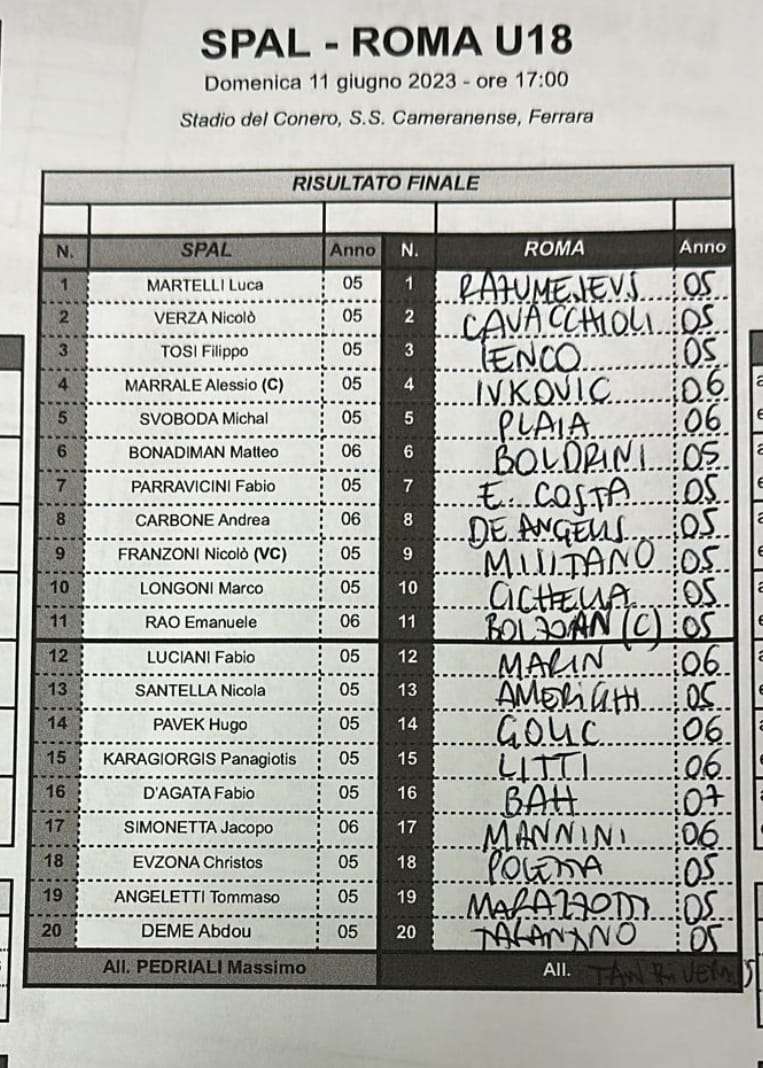 SPAL - ROMA U18
Domenica 11 giugno 2023 - ore 17:00
Stadio del Conero, S.S. Cameranense, Ferrara
RISULTATO FINALE
N. SPAL Anno N. ROMA Anno
1 MARTELLI Luca 05 1 RAZUMEJEVS 05
2 VERZA Nicolò 05 2 CAVACCHIOLI 05
3 TOSI Filippo 05 3 IENCO 05
4 MARRALE Alessio (C) 05 4 IVKOVIC 06
5 SVOBODA Michal 05 5 PLAIA 06
6 BONADIMAN Matteo 06 6 BOLDRINI 05
7 PARRAVICINI Fabio 05 7 E. COSTA 05
8 CARBONE Andrea 06 8 DE ANGELIS 05
9 FRANZONI Nicolò (VC) 05 9 MILITANO 05
10 LONGONI Marco 05 10 CICHELLA 05
11 RAO Emanuele 06 11 BOLZOAN (C) 05
12 LUCIANI Fabio 05 12 MARIN 06
13 SANTELLA Nicola 05 13 AMERIGHI 05
14 PAVEK Hugo 05 14 GOLIC 06
15 KARAGIORGIS Panagiotis 05 15 LITTI 06
16 D'AGATA Fabio 05 16 BAH 07
17 SIMONETTA Jacopo 06 17 MANNINI 06
18 EVZONA Christos 05 18 POLETTA 05
19 ANGELETTI Tommaso 05 19 MARAZZOTTI 05
20 DEME Abdou 05 20 05
All. PEDRIALI Massimo All.